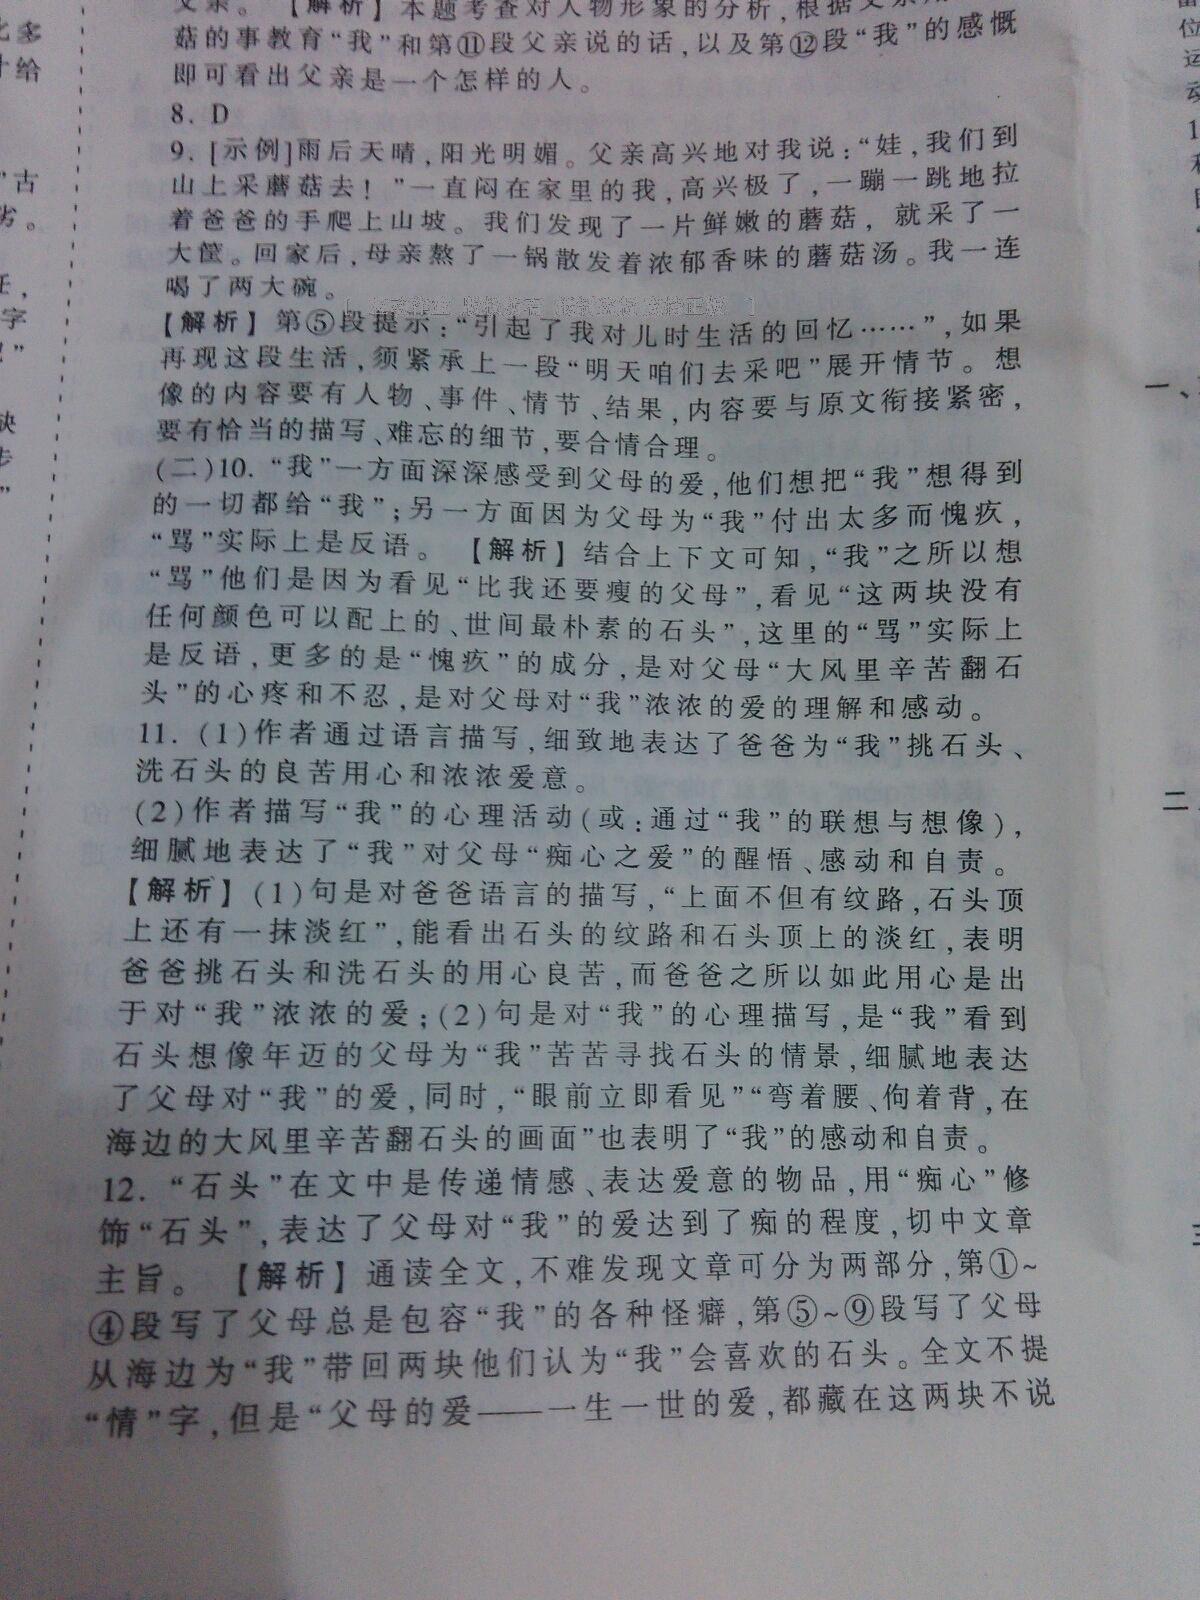 父亲。 【解析】本题考查对人物形象的分析,根据父亲用
菇的事教育“我”和第⑪段父亲说的话,以及第⑫段“我”的感慨
即可看出父亲是一个怎样的人。
8. D
9. [示例]雨后天晴,阳光明媚。父亲高兴地对我说:“娃,我们到
山上采蘑菇去! ”一直闷在家里的我,高兴极了,一蹦一跳地拉
着爸爸的手爬上山坡。我们发现了一片鲜嫩的蘑菇, 就采了一
大筐。回家后,母亲熬了一锅散发着浓郁香味的蘑菇汤。我一连
喝了两大碗。
【解析】第⑤段提示:“引起了我对儿时生活的回忆……”,如果
再现这段生活,须紧承上一段“明天咱们去采吧”展开情节。想
像的内容要有人物、事件、情节、结果,内容要与原文衔接紧密,
要有恰当的描写、难忘的细节,要合情合理。
(二)10. “我”一方面深深感受到父母的爱,他们想把“我”想得到
的一切都给“我”;另一方面因为父母为“我”付出太多而愧疚,
“骂”实际上是反语。 【解析】结合上下文可知,“我”之所以想
“骂”他们是因为看见“比我还要瘦的父母”,看见“这两块没有
任何颜色可以配上的、世间最朴素的石头”,这里的“骂”实际上
是反语,更多的是“愧疚”的成分,是对父母“大风里辛苦翻石
头”的心疼和不忍,是对父母对“我”浓浓的爱的理解和感动。
11. (1)作者通过语言描写,细致地表达了爸爸为“我”挑石头、
洗石头的良苦用心和浓浓爱意。
(2)作者描写“我”的心理活动(或:通过“我”的联想与想像),
细腻地表达了“我”对父母“痴心之爱”的醒悟、感动和自责。
【解析】(1)句是对爸爸语言的描写,“上面不但有纹路,石头顶
上还有一抹淡红”,能看出石头的纹路和石头顶上的淡红,表明
爸爸挑石头和洗石头的用心良苦,而爸爸之所以如此用心是出
于对“我”浓浓的爱;(2)句是对“我”的心理描写,是“我”看到
石头想像年迈的父母为“我”苦苦寻找石头的情景,细腻地表达
了父母对“我”的爱,同时,“眼前立即看见”“弯着腰、佝着背,在
海边的大风里辛苦翻石头的画面”也表明了“我”的感动和自责。
12. “石头”在文中是传递情感、表达爱意的物品,用“痴心”修
饰“石头”,表达了父母对“我”的爱达到了痴的程度,切中文章
主旨。 【解析】通读全文,不难发现文章可分为两部分,第①~
④段写了父母总是包容“我”的各种怪癖,第⑤~⑨段写了父母
从海边为“我”带回两块他们认为“我”会喜欢的石头。全文不提
“情”字,但是“父母的爱——一生一世的爱,都藏在这两块不说